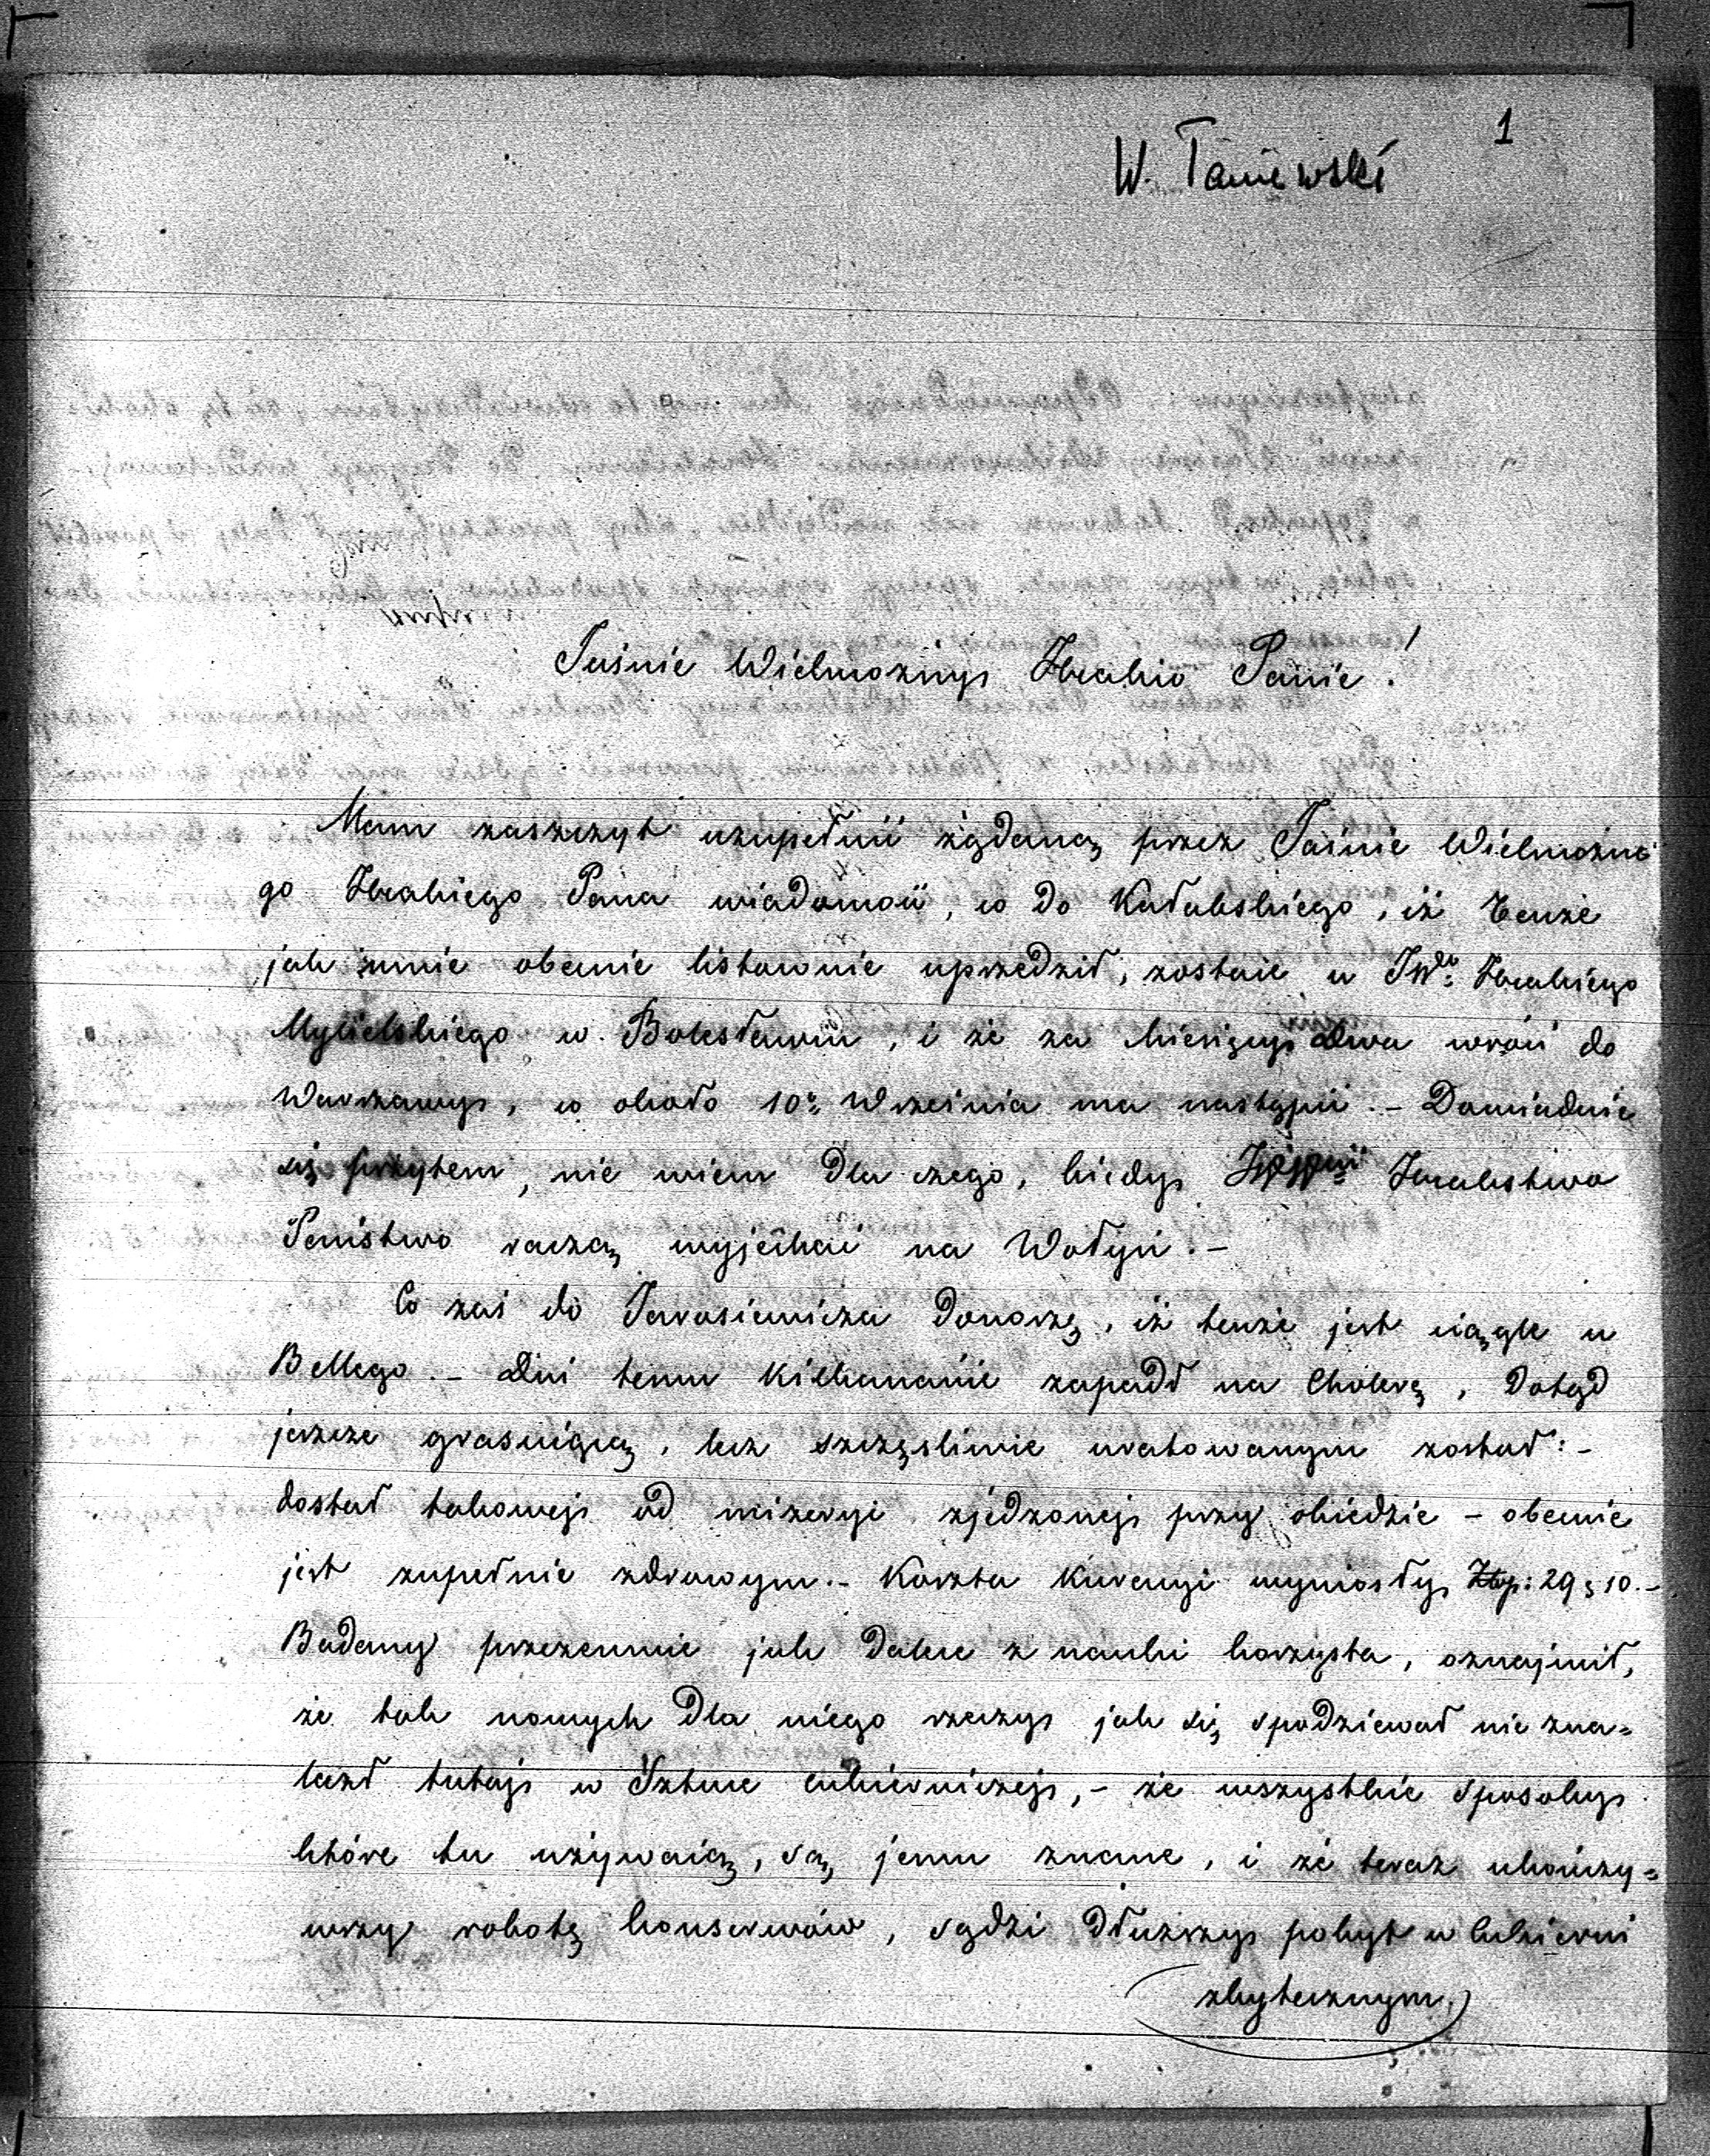 1
W. Janiewski
Jaśnie Wielmożny Hrabio Panie!
Mam zaszczyt uzupełnić żądaną przez Jaśnie Wielmożne
go Hrabiego Pana wiadomość, co do Kadubskiego, iż tenże
jak mnie obecnie listownie uprzedził, zostaie u JWgo Hrabiego
Mycielskiego w Bolesławiu, i że za Miesięcy dwa wróci do
Warszawy, co około 10o Września ma nastąpić. – Dowiaduie
się przytem, nie wiem dla czego, kiedy Hrabstwo
Państwo raczą wyjechać na Wołyń. –
Co zaś do Tarasiewicza donoszę, iż tenże jest ciągle u
Bellego. – Dni temu kilkanaście zapadł na Cholerę, dotąd
jeszcze grasuiącą, lecz szczęśliwie uratowanym został: –
dostał takowej od mizeryi zjedzonej przy obiedzie – obecnie
jest zupełnie zdrowym. – Koszta kuracyi wyniosły Złp: 29 g 10. –
Badany przezemnie jak dalece z nauki korzysta, oznajmił,
że tak nowych dla niego rzeczy jak się spodziewał nie zna=
lazł tutaj w Sztuce cukierniczej, – że wszystkie sposoby
które tu używaią, są jemu znane, i że teraz ukończy=
wszy robotę konserwów, sądzi dłuższy pobyt w cukierni
zbytecznym.